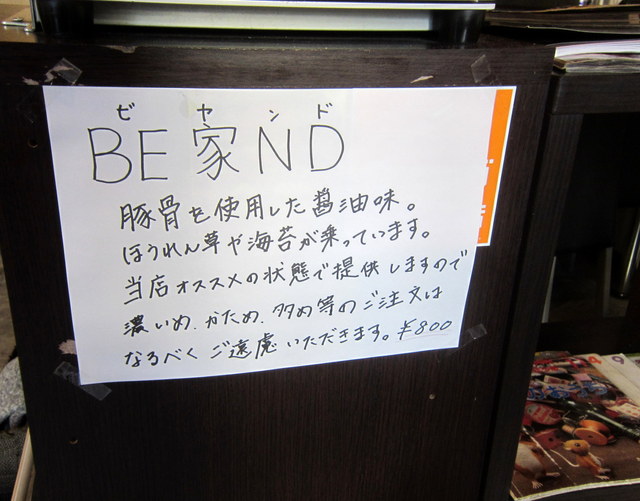 ビヤンド
BE家ND
豚骨を使用した醤油味。
ほうれん草や海苔が乗っています。
当店オススメの状態で提供しますので
濃いめ、かため、多め等のご注文は
なるべくご遠慮いただきます。¥800